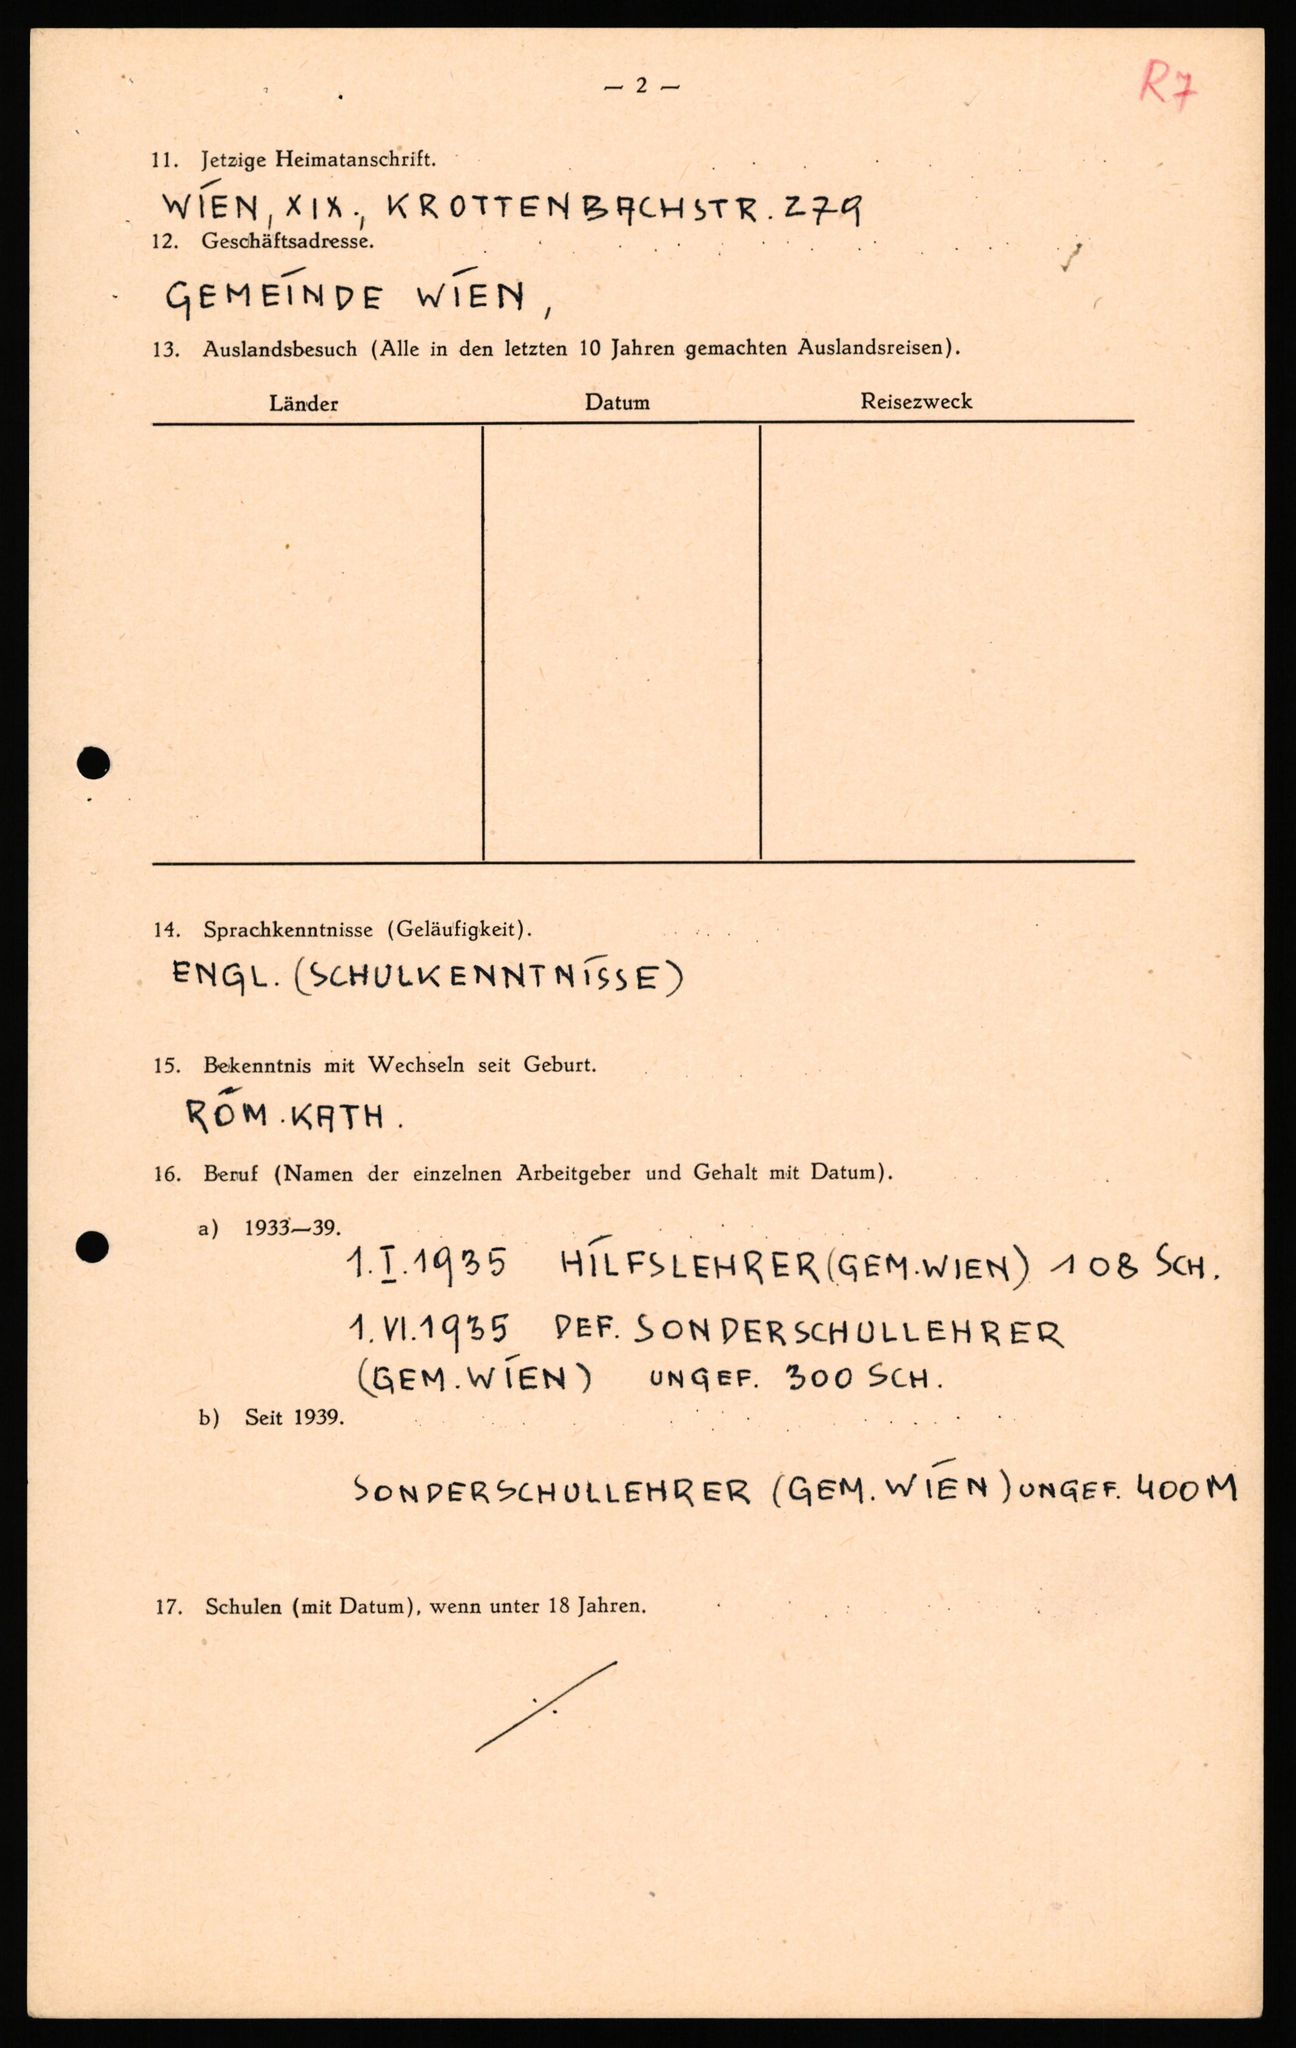 — 2 —
R7
11. Jetzige Heimatanschrift.
WIEN, XIX., KROTTENBACHSTR. 279
12. Geschäftsadresse.
GEMEINDE WIEN,
13. Auslandsbesuch (Alle in den letzten 10 Jahren gemachten Auslandsreisen).
Länder Datum Reisezweck
14. Sprachkenntnisse (Geläufigkeit).
ENGL. (SCHULKENNTNISSE)
15. Bekenntnis mit Wechseln seit Geburt.
RÖM. KATH.
16. Beruf (Namen der einzelnen Arbeitgeber und Gehalt mit Datum).
a) 1933—39.
1. I. 1935 HILFSLEHRER (GEM. WIEN) 108 SCH.
1. VI. 1935 DEF. SONDERSCHULLEHRER
(GEM. WIEN) UNGEF. 300 SCH.
b) Seit 1939.
SONDERSCHULLEHRER (GEM. WIEN) UNGEF. 400 M
17. Schulen (mit Datum), wenn unter 18 Jahren.